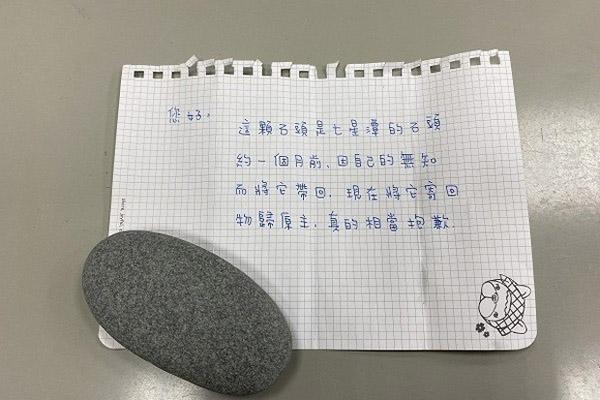 您好,
這顆石頭是七星潭的石頭
約一個月前,因自己的無知
而將它帶回,現在將它寄回
物歸原主,真的相當抱歉.